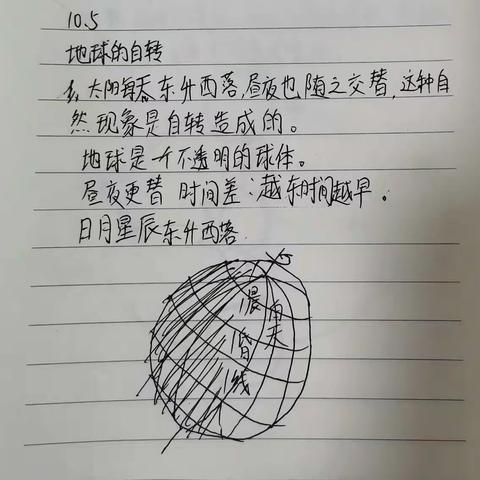 10.5
地球的自转
太阳每天东升西落,昼夜也随之交替,这种自
然现象是自转造成的。
地球是一个不透明的球体。
昼夜更替 时间差:越东时间越早。
日月星辰东升西落.
晨
昏
线